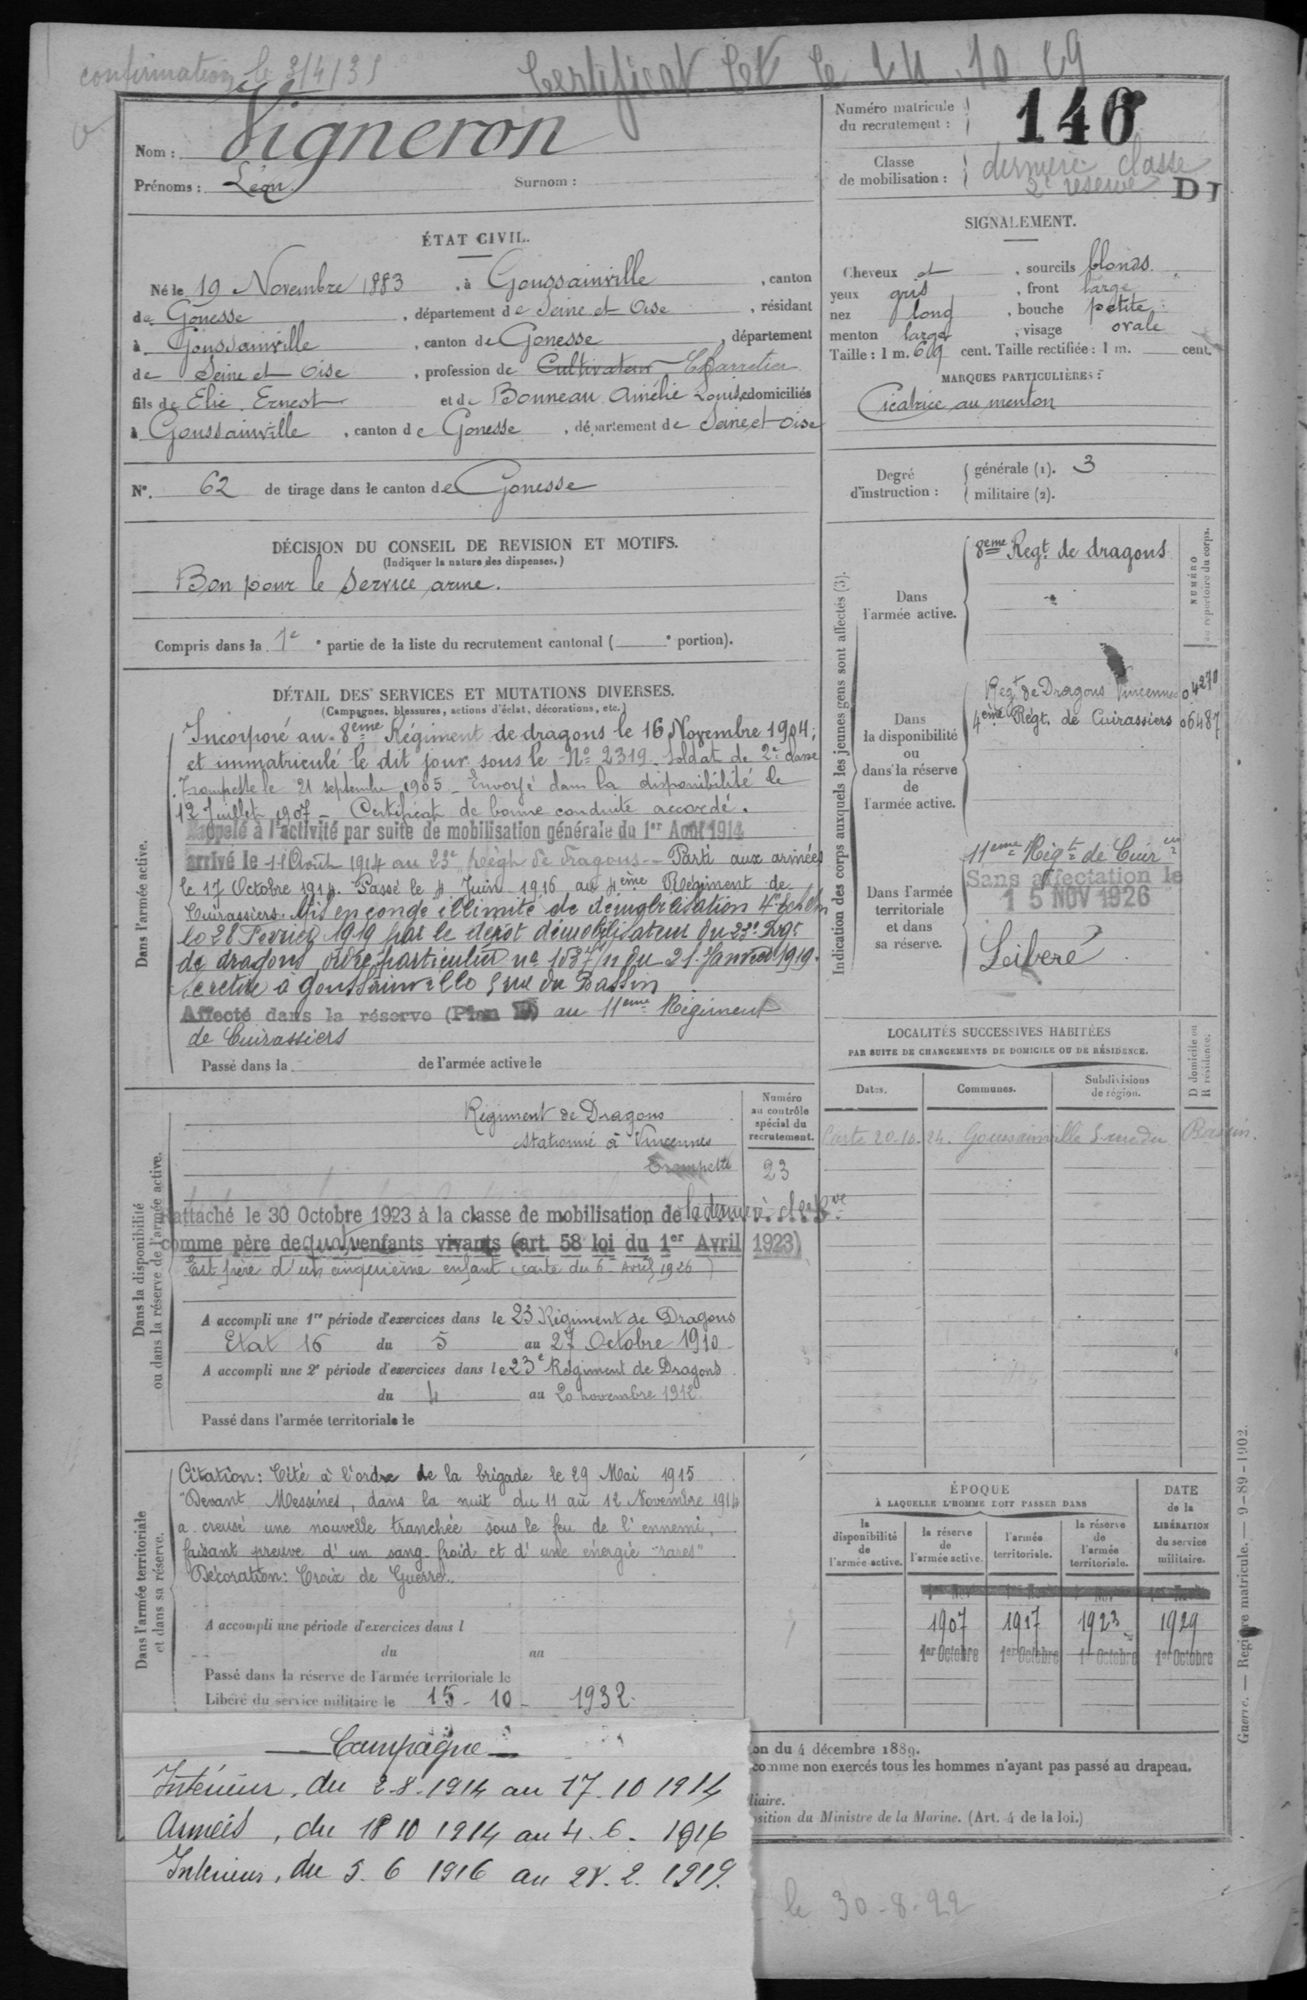 confirmation le 3/4/35
Certificat le 24.10 29
Nom : Vigneron
Prénoms : Léon. Surnom :
Numéro matricule du recrutement : 146
Classe de mobilisation : dernière classe
2e réserve DI
ÉTAT CIVIL.
Né le 19 Novembre 1883, à Goussainville, canton
de Gonesse, département de Seine et Oise, résidant
à Goussainville, canton de Gonesse, département
de Seine et Oise, profession de Cultivateur Charretier
fils de Elie Ernest et de Bonneau Amélie Louise domiciliés
à Goussainville, canton de Gonesse, département de Seine et Oise
SIGNALEMENT.
Cheveux et, sourcils blonds.
yeux gris, front large
nez long, bouche petite
menton large, visage ovale
Taille : 1 m. 69 cent. Taille rectifiée : 1 m. cent.
MARQUES PARTICULIÈRES :
Cicatrice au menton
N°. 62 de tirage dans le canton de Gonesse
Degré d'instruction :
générale (1). 3
militaire (2).
DÉCISION DU CONSEIL DE REVISION ET MOTIFS.
(Indiquer la nature des dispenses.)
Bon pour le service armé.
Compris dans la 1e partie de la liste du recrutement cantonal ( portion).
DÉTAIL DES SERVICES ET MUTATIONS DIVERSES.
(Campagnes, blessures, actions d'éclat, décorations, etc.)
Dans l'armée active.
Incorporé au 8ème Régiment de dragons le 16 Novembre 1904;
et immatriculé le dit jour sous le No 2319. Soldat de 2e classe
Trompette le 21 septembre 1905 - Envoyé dans la disponibilité le
12 Juillet 1907 - Certificat de bonne conduite accordé.
Rappelé à l'activité par suite de mobilisation générale du 1er Août 1914
arrivé le 11 Août 1914 au 23e régt de dragons - Parti aux armées
le 17 Octobre 1914. Passé le 4 Juin 1916 au 4ème Régiment de
Cuirassiers. Mis en congé illimité de démobilisation 4e échelon
le 28 Février 1919 par le dépôt démobilisateur du 23e Régt
de dragons ordre particulier no 1037/11 du 21 Janvier 1919.
se retire à Goussainville 5 rue du Bassin
Affecté dans la réserve (Plan ) au 11eme Régiment
de Cuirassiers
Passé dans la de l'armée active le
Indication des corps auxquels les jeunes gens sont affectés (3).
NUMÉRO au répertoire du corps.
Dans l'armée active.
8eme Regt. de dragons
Dans la disponibilité ou dans la réserve de l'armée active.
Regt de Dragons Vincennes 04270
4eme Régt. de Cuirassiers 06487
Dans l'armée territoriale et dans sa réserve.
11eme Régt de Cuirers
Sans affectation le
15 NOV 1926
Libéré
LOCALITÉS SUCCESSIVES HABITÉES
PAR SUITE DE CHANGEMENTS DE DOMICILE OU DE RÉSIDENCE.
Dates. Communes. Subdivisions de région. D domicile ou R résidence.
Carte 20.10.24. Goussainville 5 rue du Bassin.
Dans la disponibilité ou dans la réserve de l'armée active.
Numéro au contrôle spécial du recrutement.
Régiment de Dragons
stationné à Vincennes
Trompette 23
Rattaché le 30 Octobre 1923 à la classe de mobilisation de la dernière cl. 2e Rve
comme père de quatre enfants vivants (art. 58 loi du 1er Avril 1923)
Est père d'un cinquième enfant (carte du 6 avril 1926)
A accompli une 1re période d'exercices dans le 23 Régiment de Dragons
Etat 16 du 5 au 27 Octobre 1910
A accompli une 2e période d'exercices dans le 23e Régiment de Dragons
du 4 au 20 novembre 1912.
Passé dans l'armée territoriale le
Dans l'armée territoriale et dans sa réserve.
Citation : Cité à l'ordre de la brigade le 29 Mai 1915
"Devant Messines, dans la nuit du 11 au 12 Novembre 1914
a creusé une nouvelle tranchée sous le feu de l'ennemi,
faisant preuve d'un sang-froid et d'une énergie rares"
Décoration : Croix de Guerre.
A accompli une période d'exercices dans l
du au
Passé dans la réserve de l'armée territoriale le
Libéré du service militaire le 15 - 10 - 1932.
ÉPOQUE
À LAQUELLE L'HOMME DOIT PASSER DANS
DATE de la LIBÉRATION du service militaire.
la disponibilité de l'armée active. la réserve de l'armée active. l'armée territoriale. la réserve de l'armée territoriale.
1907 1917 1923 1929
1er Octobre 1er Octobre 1er Octobre 1er Octobre
Guerre. — Registre matricule. — 9-89-1902.
on du 4 décembre 1889.
comme non exercés tous les hommes n'ayant pas passé au drapeau.
liaire.
sition du Ministre de la Marine. (Art. 4 de la loi.)
Campagne
Intérieur, du 2.8.1914 au 17.10 1914
Armées, du 18 10 1914 au 4.6. 1916
Intérieur, du 5.6 1916 au 28.2.1919.
le 30-8-22